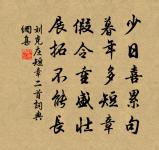 少日喜累句
暮年多短章
假令重盛壯
展拓不能長
刘克庄短章二首詞典
網集